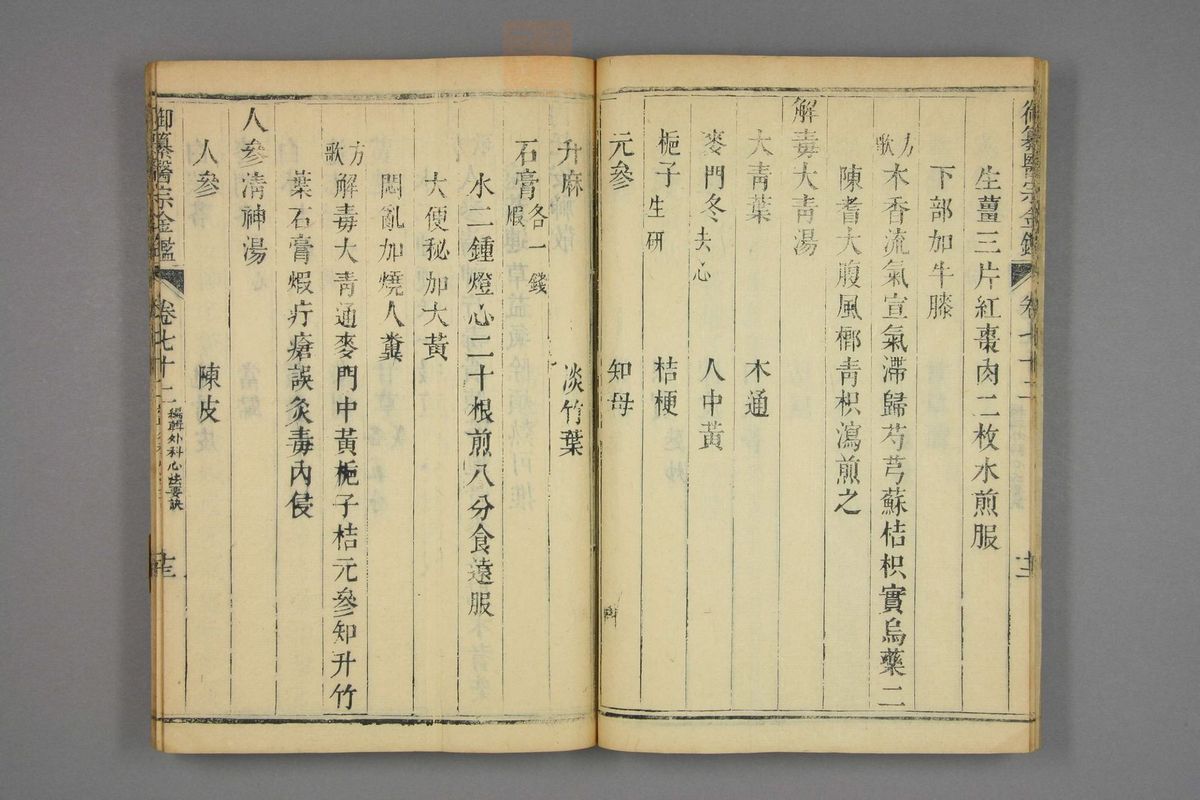 生薑三片紅棗肉二枚水煎服
下部加牛膝
方歌
木香流氣宣氣滯歸芍芎蘇桔枳實烏藥二
陳耆大腹風榔青枳瀉煎之
解毒大青湯
大青葉 木通
麥門冬去心 人中黃
梔子生研 桔梗
元參 知母
升麻 淡竹葉
石膏煅各一錢
水二鍾燈心二十根煎八分食遠服
大便秘加大黃
悶亂加燒人糞
方歌
解毒大青通麥門中黃梔子桔元參知升竹
葉石膏煆疔瘡誤灸毒內侵
人參清神湯
人參 陳皮
御纂醫宗金鑑
卷七十二
編輯外科心法要訣